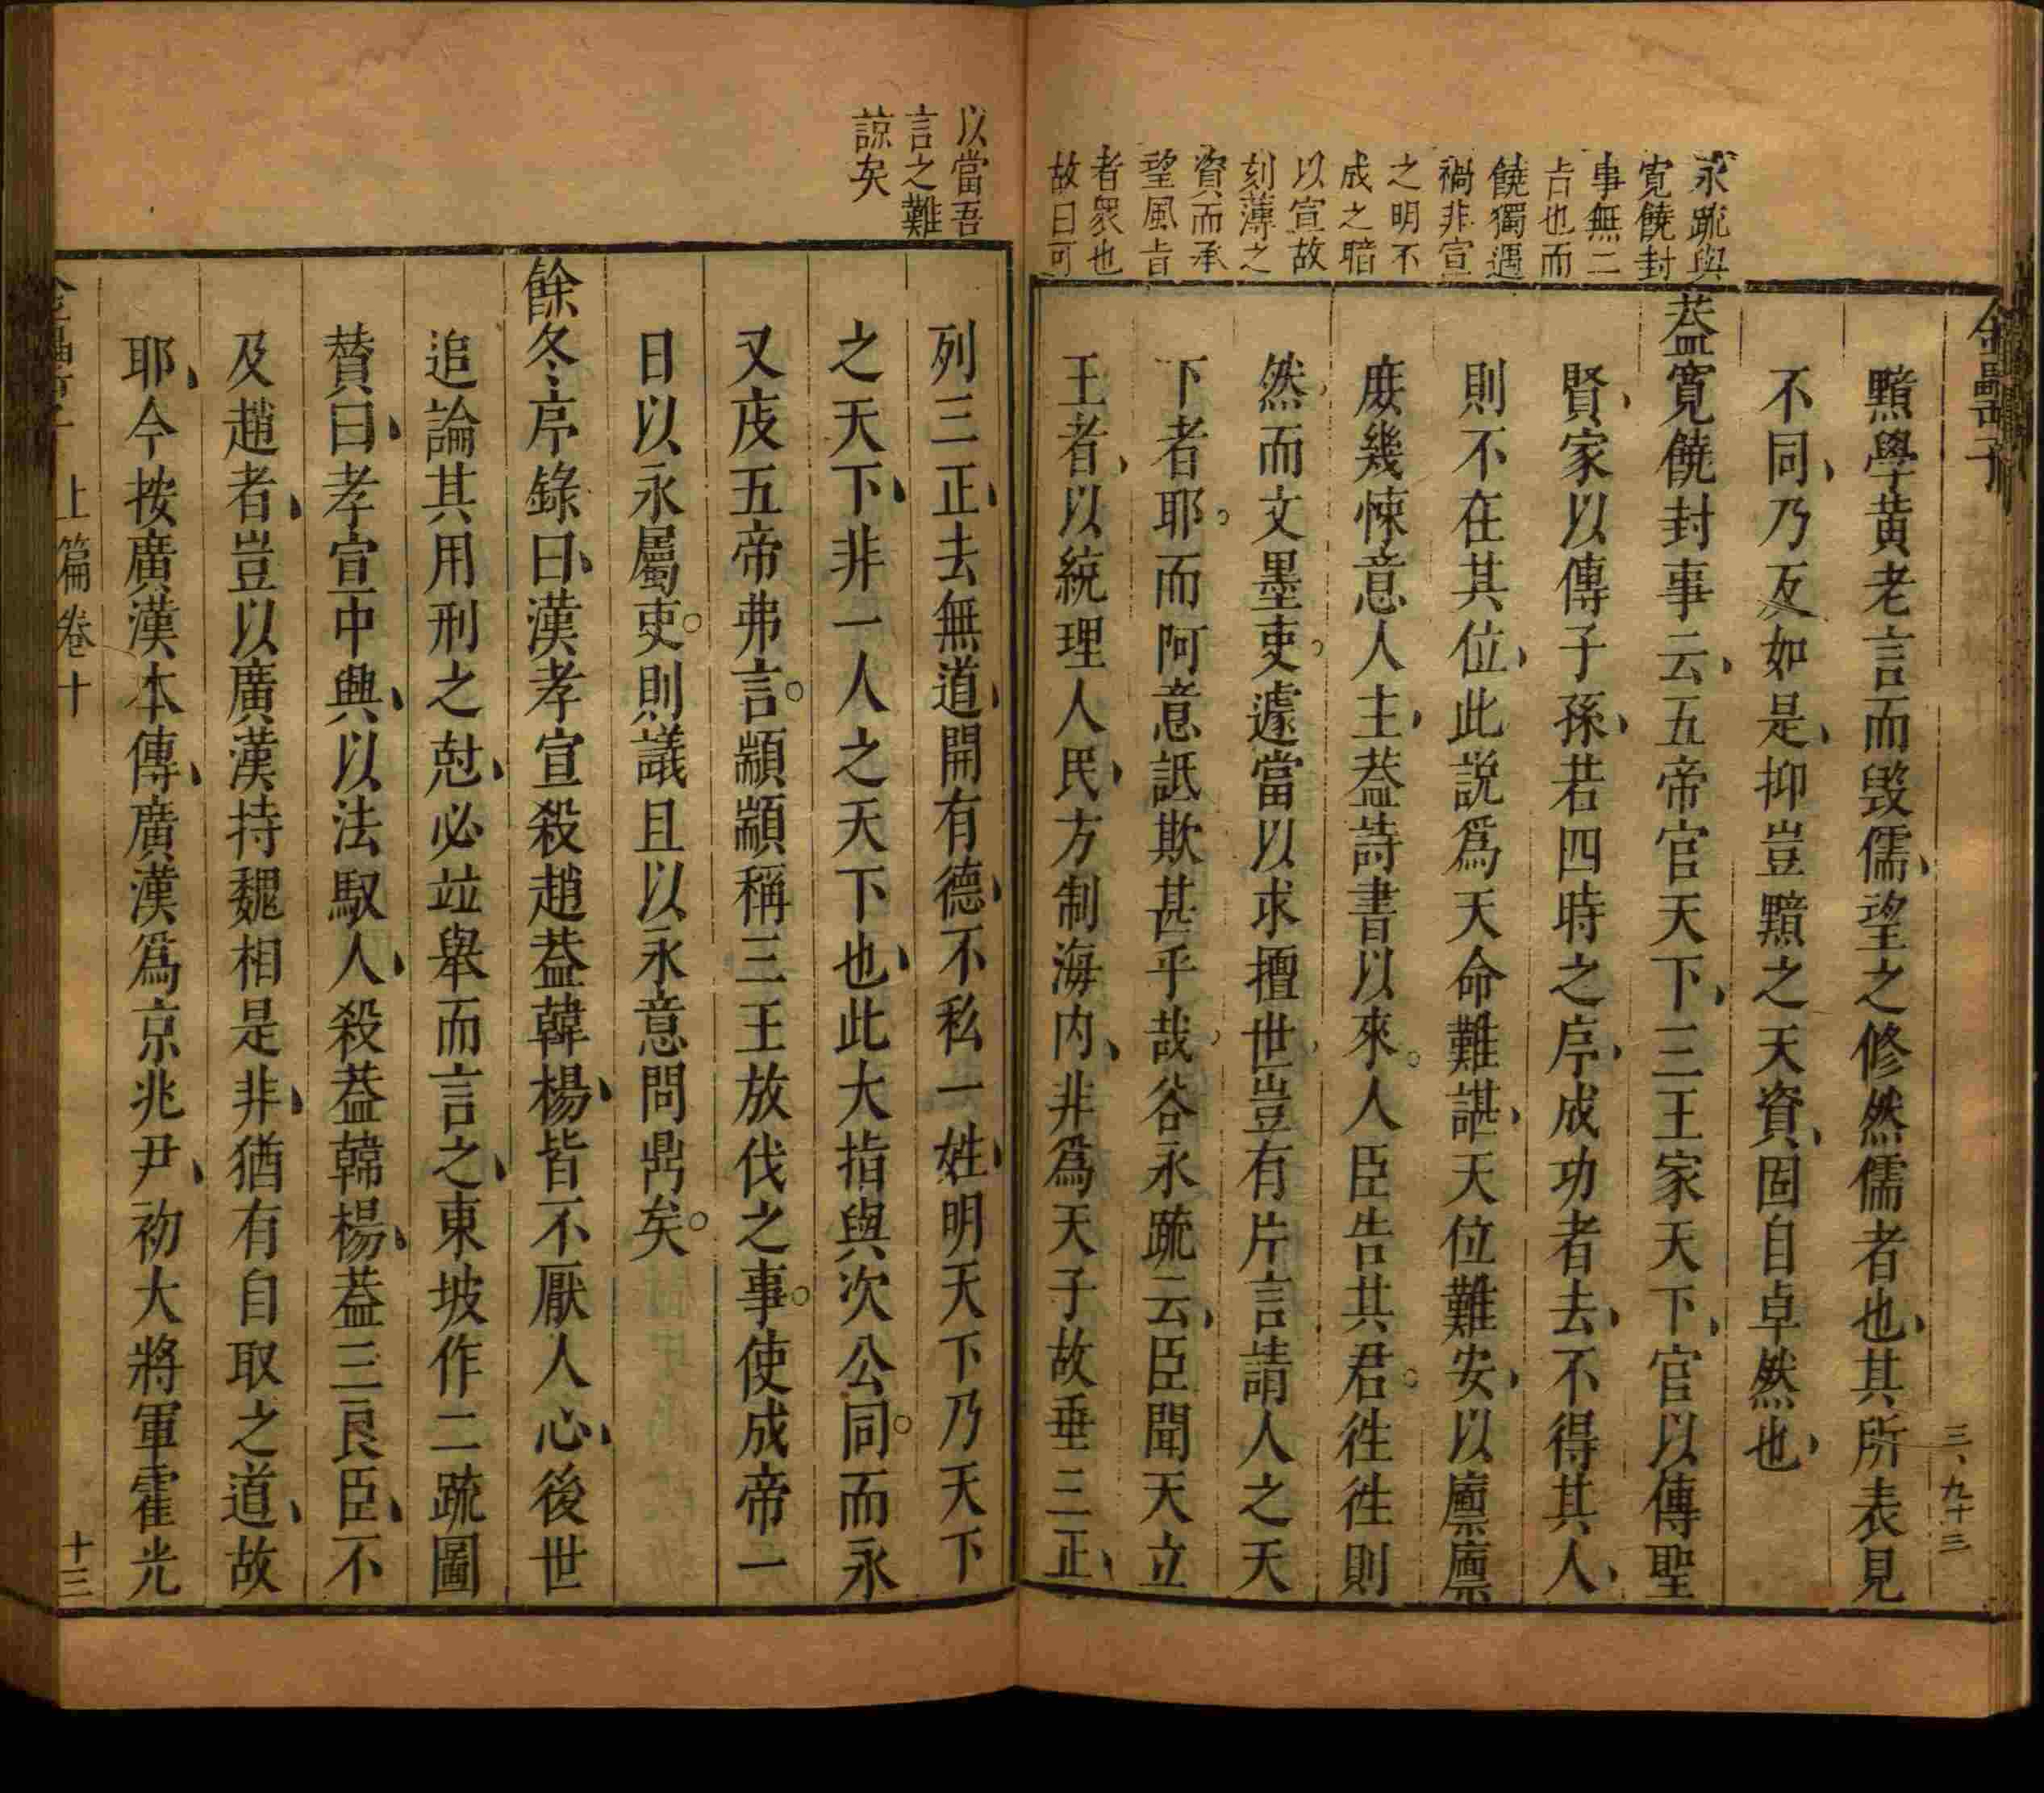 金罍子
三、九十三
永䟽與
寛饒封
事無二
占也而
饒獨遇
禍非宣
之明不
成之暗
以宣故
刻薄之
資而承
望風旨
者衆也
故曰可
黯學黄老言而毀儒、望之修然儒者也、其所表見
不同、乃反如是、抑豈黯之天資、固自卓然也、
葢寛饒封事云、五帝官天下、三王家天下、官以傳聖
賢、家以傳子孫、若四時之序、成功者去、不得其人、
則不在其位、此説爲天命難諶、天位難安、以廩廩
庶幾悚意人主、葢詩書以來。人臣告其君。徃徃則
然。而文墨吏。遽當以求擅世。豈有片言請人之天
下者耶。而阿意詆欺甚乎哉。谷永䟽云、臣聞天立
王者、以統理人民、方制海内、非爲天子故垂三正、
以當吾
言之難
諒矣
列三正、去無道、開有德、不私一姓、明天下乃天下
之天下、非一人之天下也、此大指與次公同。而永
又戌五帝弗言。顓顓稱三王放伐之事。使成帝一
日以永屬吏。則議且以永意問鼎矣。
餘冬序錄曰、漢孝宣殺趙葢韓楊、皆不厭人心、後世
追論其用刑之尅、必竝舉而言之、東坡作二䟽圖
賛曰、孝宣中興、以法馭人、殺葢韓楊、葢三良臣、不
及趙者、豈以廣漢持魏相是非、猶有自取之道、故
耶、今按廣漢本傳、廣漢爲京兆尹、初大將軍霍光
上篇卷十
十三